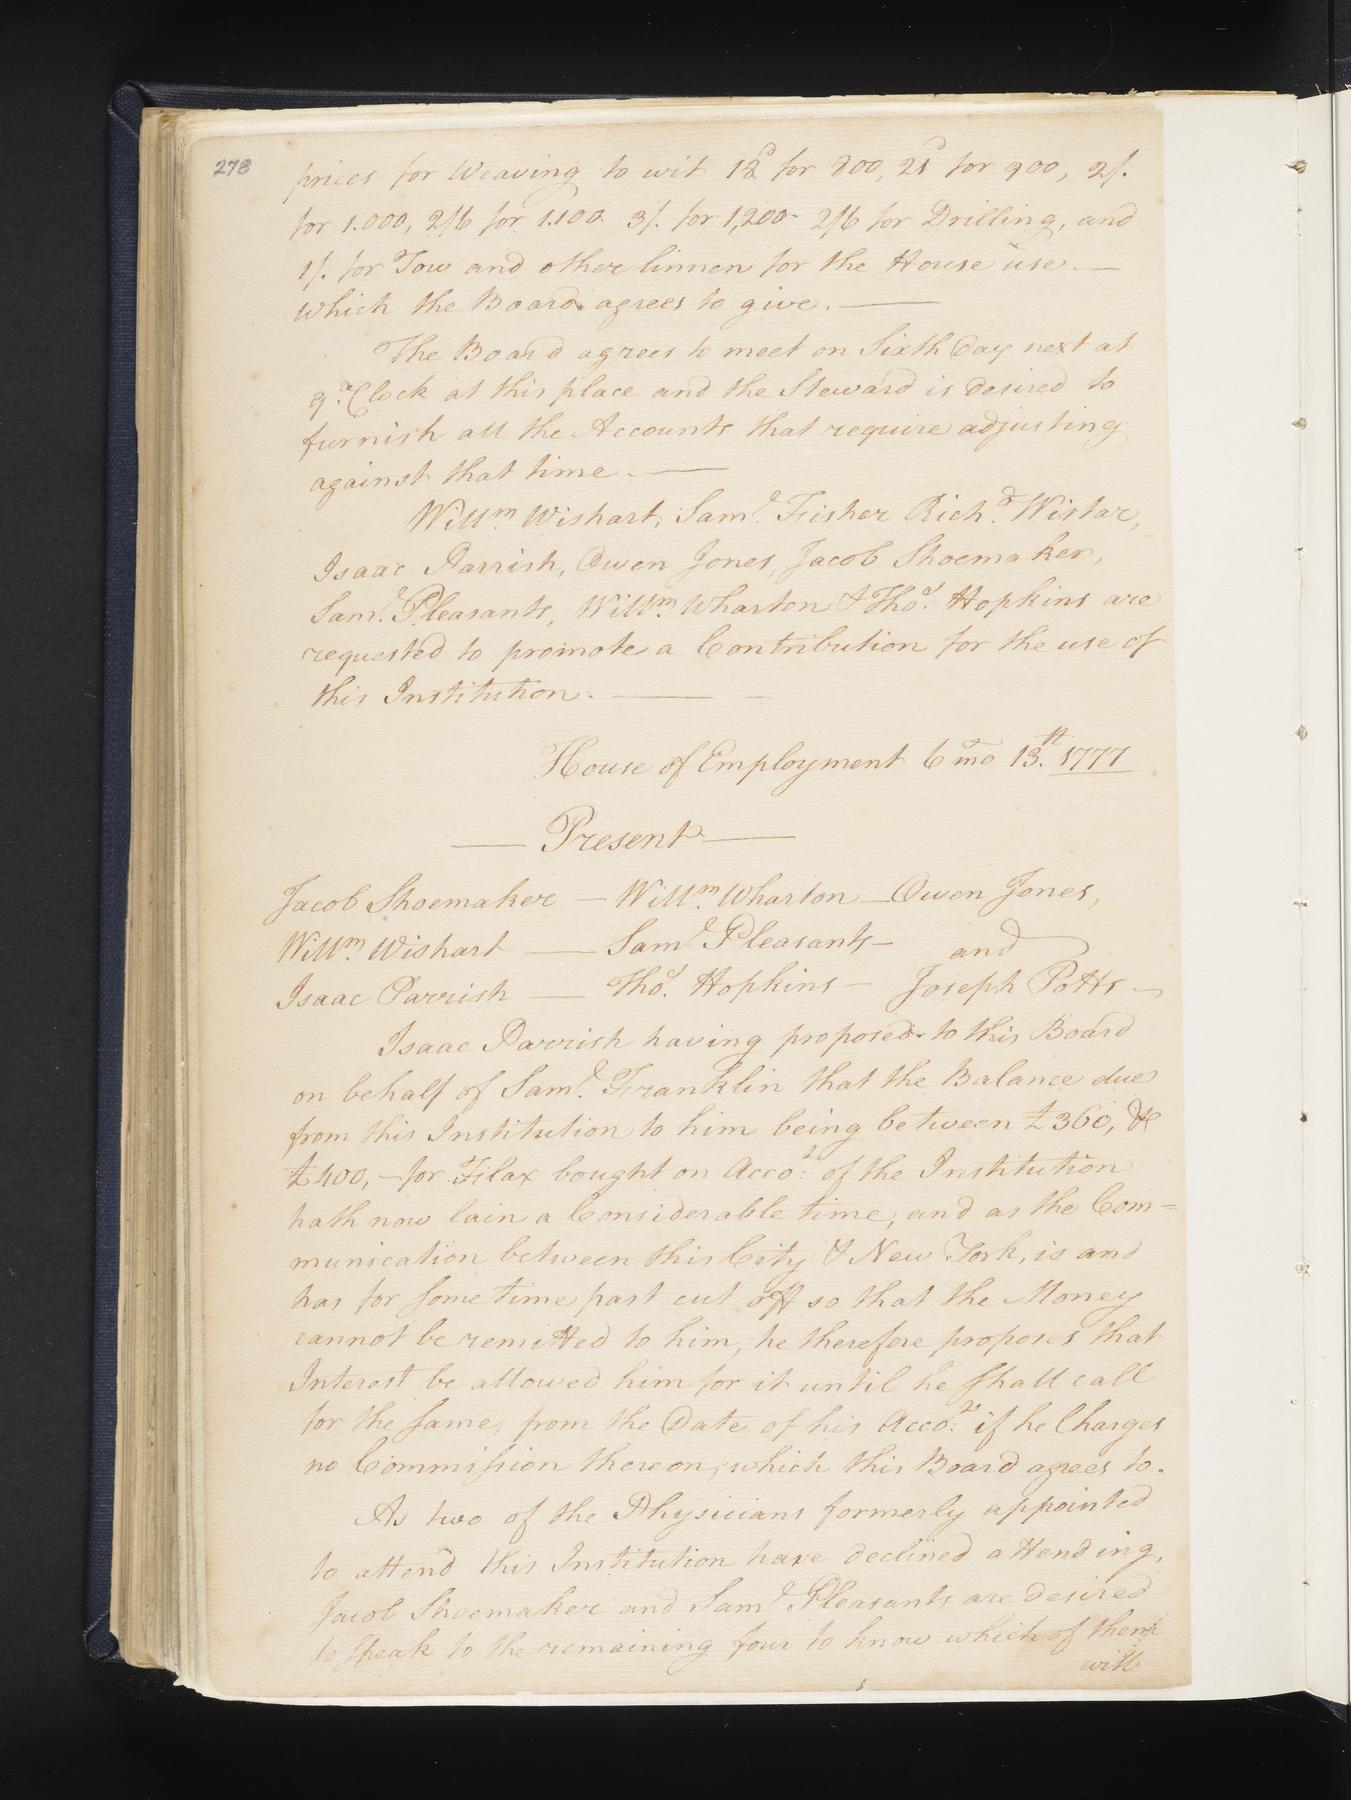 278
prices for Weaving to wit 18d for 800, 21d for 900, 2/.
for 1.000, 2/6 for 1.100. 3/. for 1,200- 2/6 for Drilling, and
1/. for Tow and other linnen for the House use.—
which the Board agrees to give.—
The Board agrees to meet on Sixth Day next at
9 oClock at this place and the Steward is desired to
furnish all the Accounts that require adjusting
against that time.—
Willm. Wishart, Saml. Fisher Richd. Wistar,
Isaac Parrish, Owen Jones, Jacob Shoemaker,
Saml. Pleasants, Willm. Wharton & Thos. Hopkins are
requested to promote a Contribution for the use of
this Institution.— —
House of Employment 6mo 13th. 1777
— Present —
Jacob Shoemaker — Willm. Wharton — Owen Jones,
Willm. Wishart — Saml Pleasants — and
Isaac Parrish — Thos. Hopkins — Joseph Potts —
Isaac Parrish having proposed to this Board
on behalf of Saml. Franklin that the Balance due
from this Institution to him being between £360, &
£400,- for Flax bought on Accot: of the Institution
hath now lain a Considerable time, and as the Com=
munication between this City & New York, is and
has for some time past cut off so that the Money
cannot be remitted to him, he therefore proposes that
Interest be allowed him for it until he shall call
for the same, from the Date of his Accot: if he Charges
no Commission thereon, which this Board agrees to.
As two of the Physicians formerly appointed
to attend this Institution have declined attending,
Jacob Shoemaker and Saml Pleasants are desired
to speak to the remaining four to know which of them
will